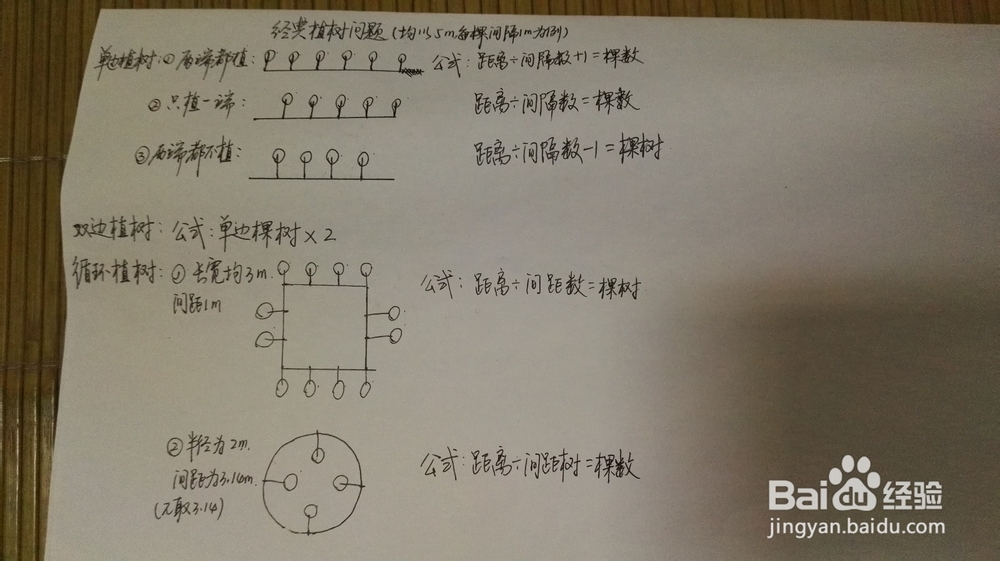 经典植树问题(均以5m每棵间隔1m为例)
单边植树:①两端都植: 公式:距离÷间隔数+1=棵数
②只植一端: 距离÷间隔数=棵数
③两端都不植: 距离÷间隔数-1=棵树
双边植树:公式:单边棵树×2
循环植树:①长宽均3m. 公式:距离÷间距数=棵树
间距1m
②半径为2m. 公式:距离÷间距树=棵数
间距为3.14m.
(兀取3.14)
Baidu经验
jingyan.baidu.com